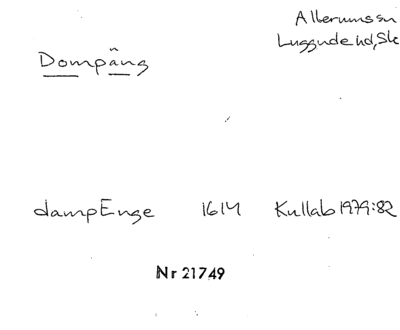 Allerums sn
Luggude hd, Sk
Dompäng
dampEnge 1614 Kullab 1979:82
Nr 21749